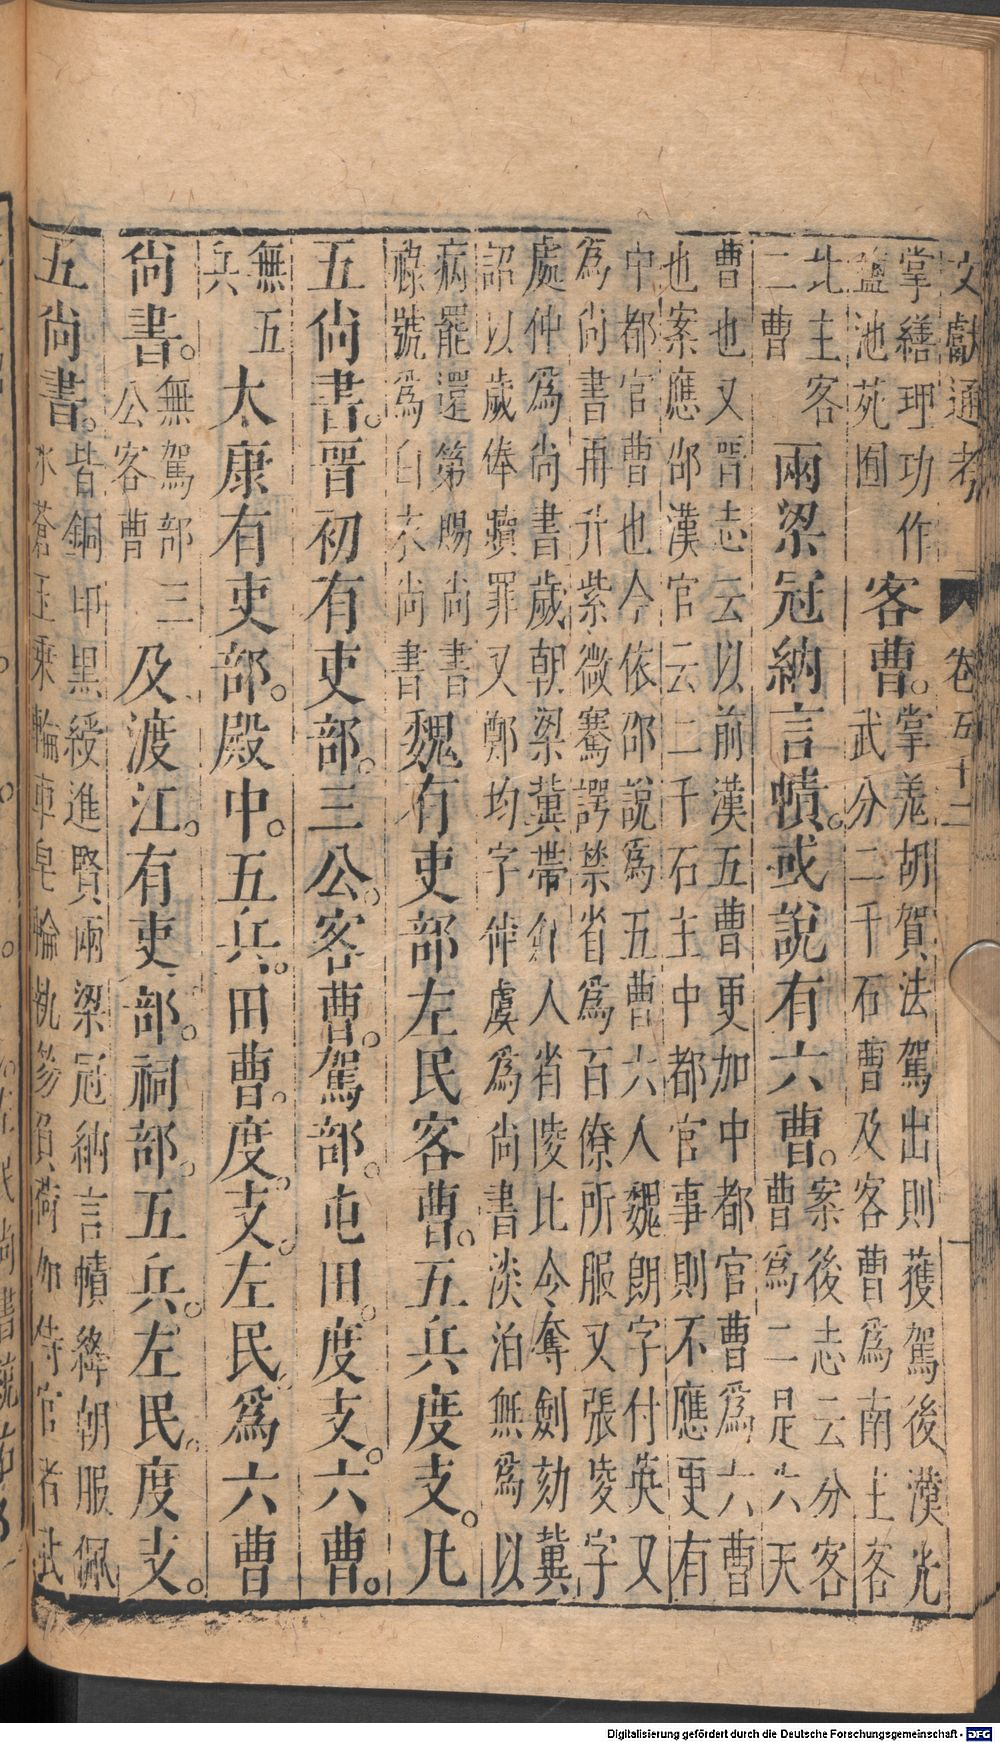 文獻通考 卷五十二
掌繕理功作
鹽池苑囿
客曹。
掌羗胡賀法駕出則獲駕後漢光
武分二千石曹及客曹爲南主客
北主客
二曹
兩梁冠納言幘。或說有六曹。
案後志云分客
曹爲二是六天
曹也又晉志云以前漢五曹更加中都官曹爲六曹
也案應邵漢官云二千石主中都官事則不應更有
中都官曹也今依邵說爲五曹六人魏朗字付英又
爲尚書再升紫微騫諤禁省爲百僚所服又張凌字
處仲爲尚書歲朝梁冀帶介人省陵比令奪劍劾冀
詔以歲俸贖罪又鄭均字仲虞爲尚書淡泊無爲以
病罷還第賜尚書
祿號爲白衣尚書
魏有吏部左民客曹。五兵度支。凡
五尚書。晉初有吏部。三公。客曹。駕部。屯田。度支。六曹。
無五
兵
太康有吏部。殿中。五兵。田曹。度支。左民爲六曹
尚書。
無駕部三
公客曹
及渡江。有吏部。祠部。五兵。左民。度支。
五尚書。
皆銅印黒綬進賢兩梁冠納言幘絳朝服佩
水蒼玉乘軺車皂輪執笏負荷加侍官者武
Digitalisierung gefördert durch die Deutsche Forschungsgemeinschaft - DFG